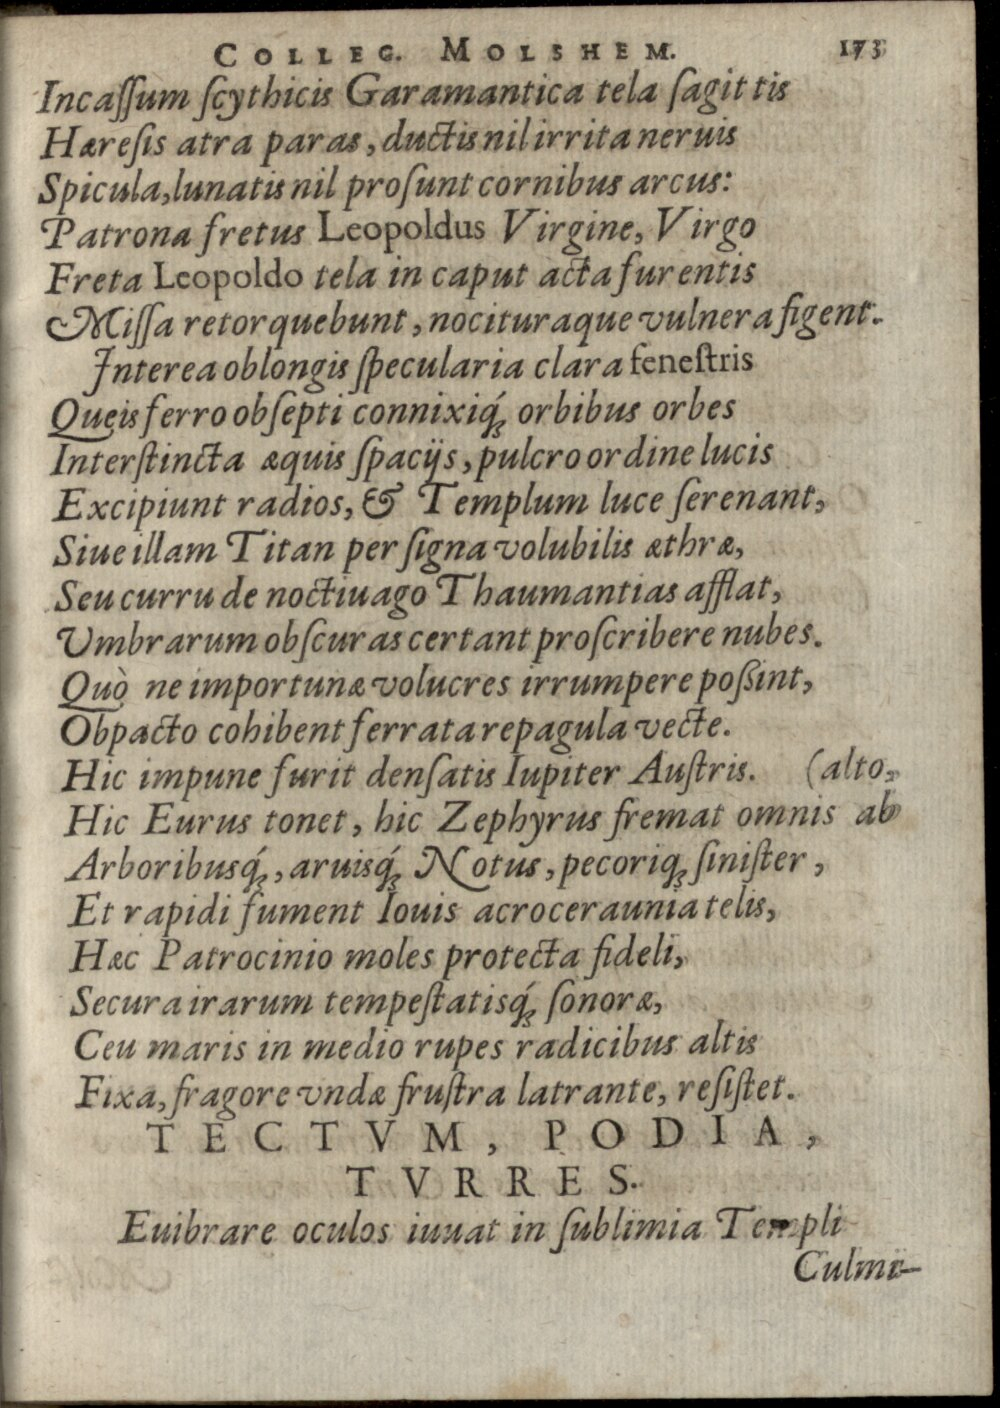 COLLEG. MOLSHEM. 173
Incaſſum ſcythicis Garamantica tela ſagittis
Hæreſis atra paras, ductis nil irrita neruis
Spicula, lunatis nil proſunt cornibus arcus:
Patrona fretus Leopoldus Virgine, Virgo
Freta Leopoldo tela in caput acta furentis
Miſſa retorquebunt, nocituraque vulnera figent.
Interea oblongis ſpecularia clara feneſtris
Queis ferro obſepti connixiq́; orbibus orbes
Interſtincta æquis ſpacijs, pulcro ordine lucis
Excipiunt radios, & Templum luce ſerenant,
Siue illam Titan per ſigna volubilis æthræ,
Seu curru de noctiuago Thaumantias afflat,
Vmbrarum obſcuras certant proſcribere nubes.
Quò ne importunæ volucres irrumpere poßint,
Obpacto cohibent ferrata repagula vecte.
Hic impune furit denſatis Iupiter Auſtris. (alto,
Hic Eurus tonet, hic Zephyrus fremat omnis ab
Arboribusq́;, aruisq́; Notus, pecoriq; ſiniſter,
Et rapidi fument Iouis acroceraunia telis,
Hæc Patrocinio moles protecta fideli,
Secura irarum tempeſtatisq́; ſonoræ,
Ceu maris in medio rupes radicibus altis
Fixa, fragore vndæ fruſtra latrante, reſiſtet.
TECTVM, PODIA,
TVRRES.
Euibrare oculos iuuat in ſublimia Templi
Culmi-